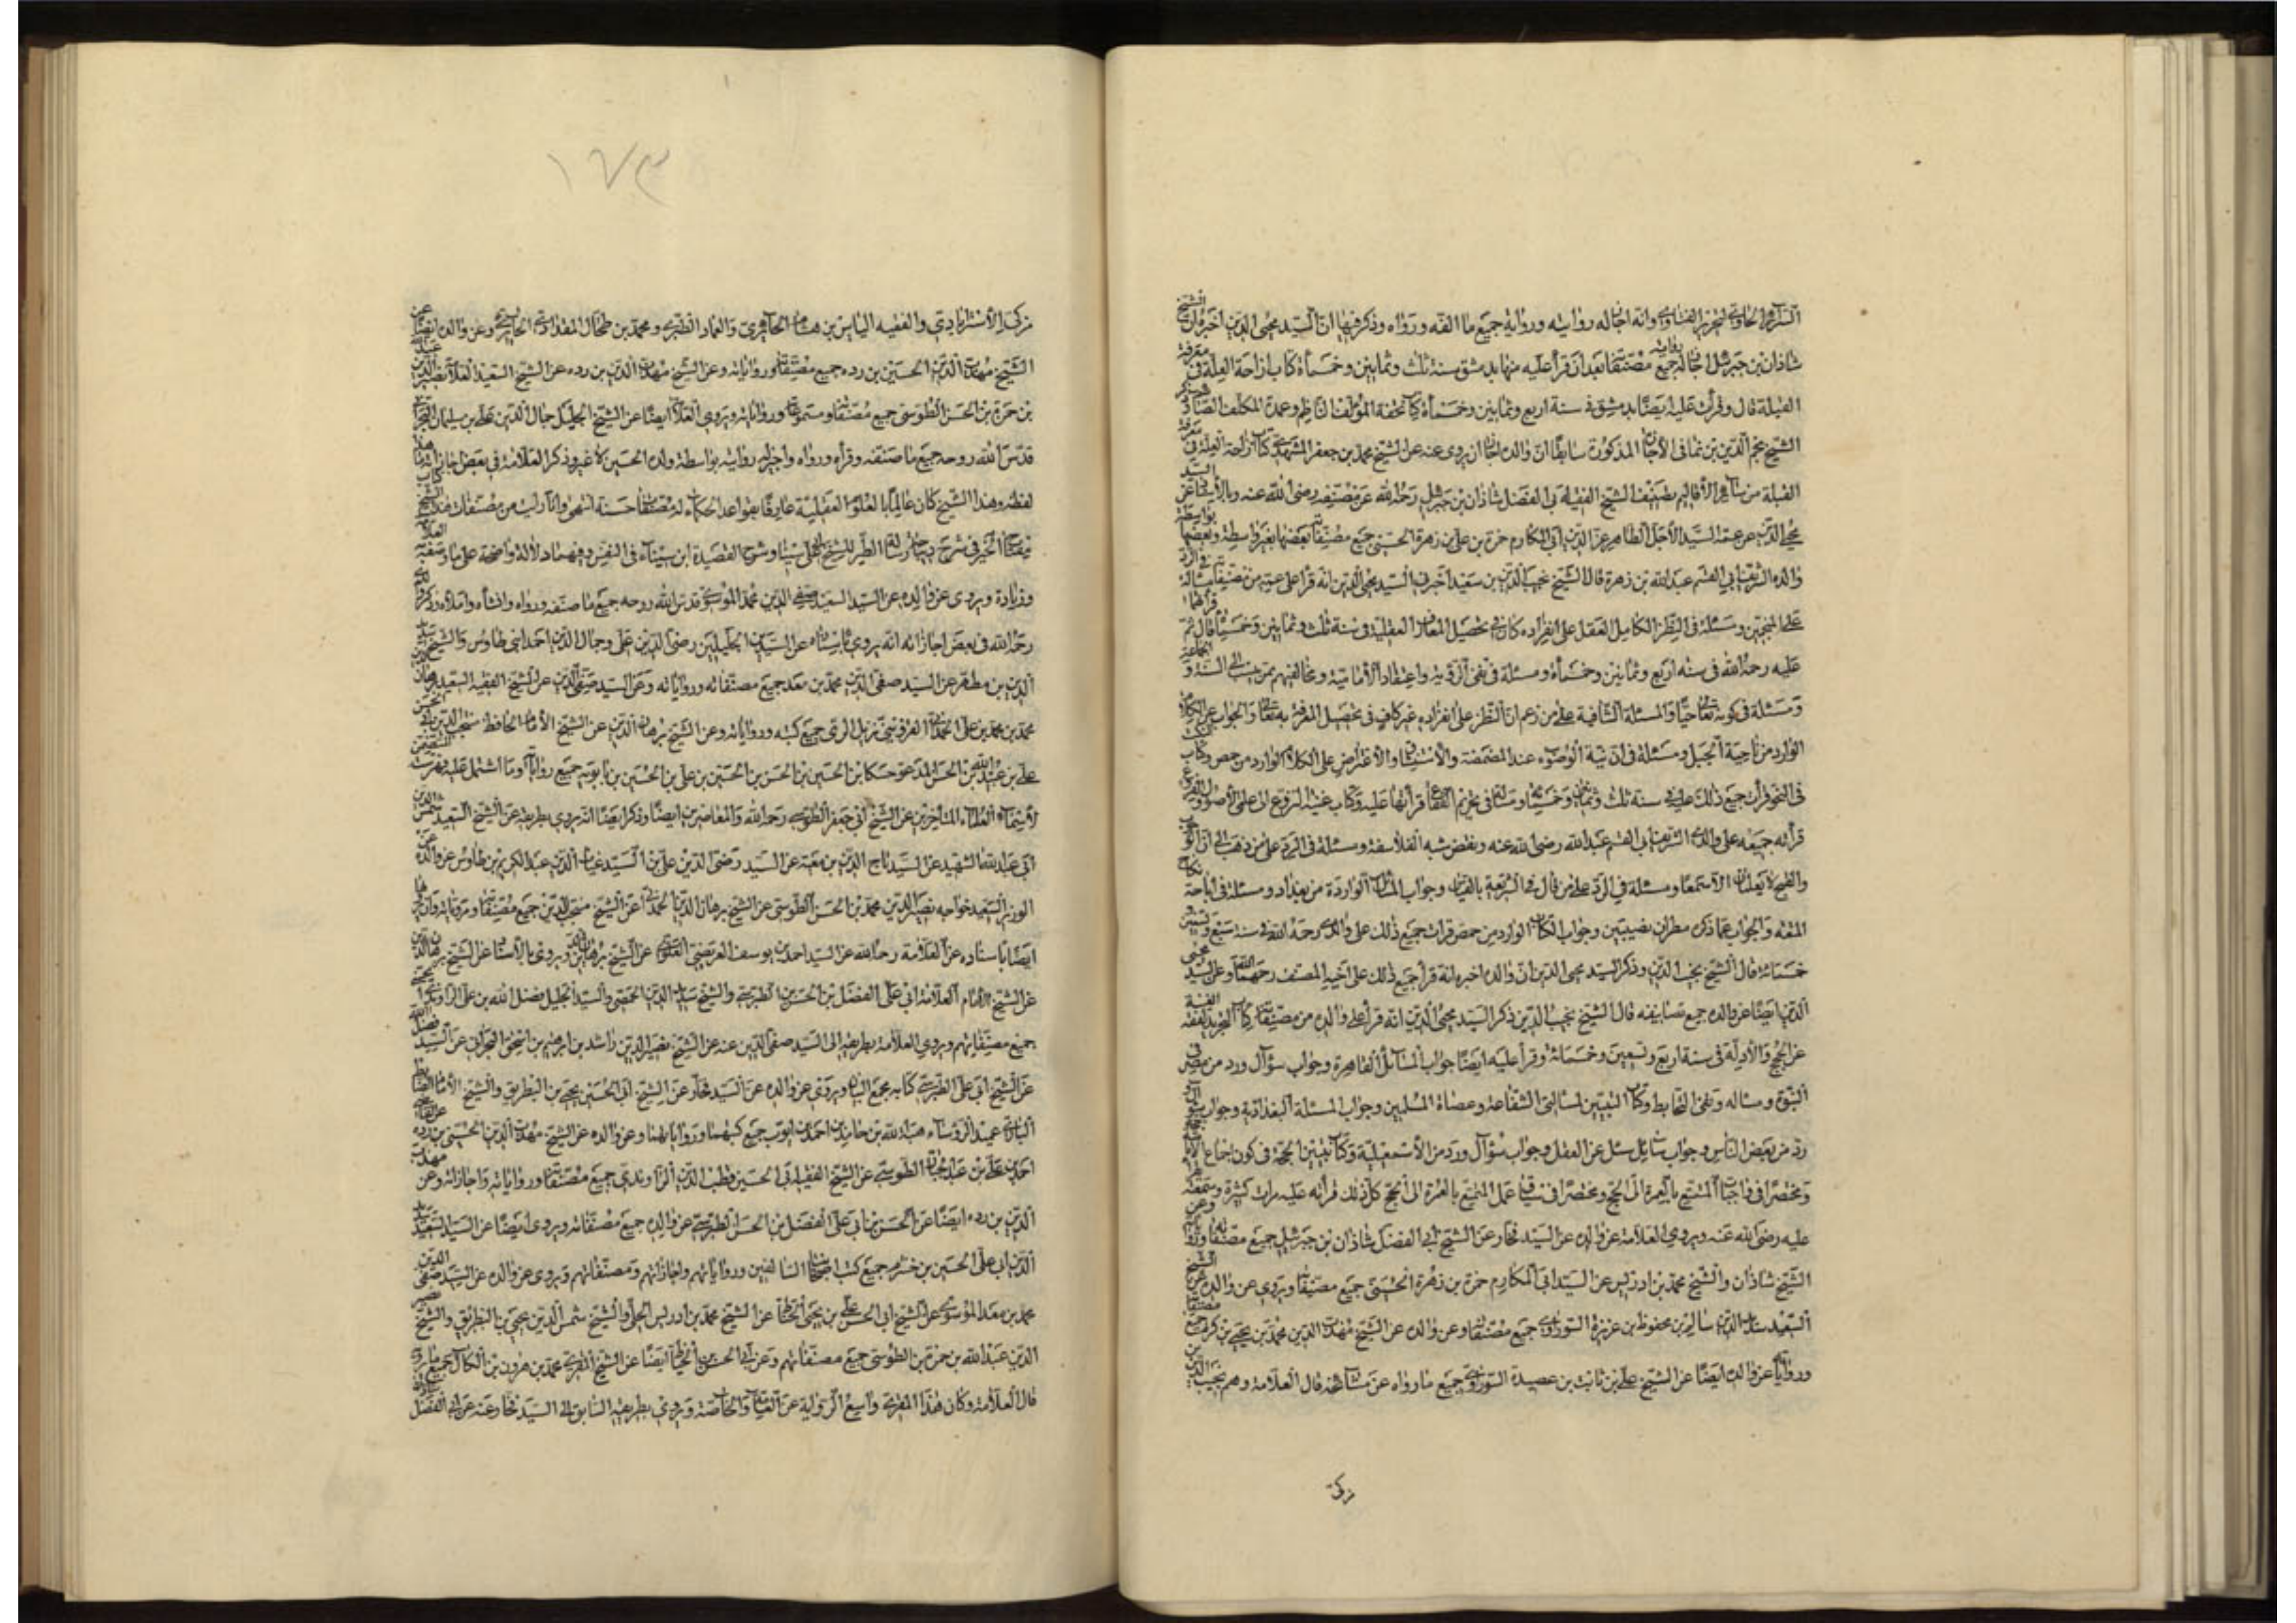 السرائر الحاوي لتحرير الفتاوي وانه اجاز له روايته ورواية جميع ما الفه ورواه وذكر فيها ان السيد محيي الدين اخبره ان الشيخ
شاذان بن جبرئيل اجاز له رواية جميع مصنفاته بعد ان قرأ عليه منها بدمشق سنة ثلث وثمانين وخمسمأة كتاب ازاحة العلة في معرفة
القبلة قال وقرأت عليه ايضا بدمشق في سنة اربع وثمانين وخمسمأة كتاب تحفة المؤلف الناظم وعمدة المكلف الصائم
الشيخ نجم الدين بن نما في الاجازة المذكورة سابقا ان والده اجاز ان يروي عنه عن الشيخ محمد بن جعفر المشهدي كتاب ازاحة العلة في معرفة
القبلة من سائر الأقاليم تصنيف الشيخ الفقيه ابي الفضل شاذان بن جبرئيل رحمه الله عن مصنفه رضي الله عنه وبالأسناد عن السيد
محيي الدين عن عمه السيد الأجل الطاهر عز الدين ابي المكارم حمزة بن علي بن زهرة الحسيني جميع مصنفاته بعضها بغير واسطة وبعضها بواسطة
والده الشريف ابي القسم عبد الله بن زهرة قال الشيخ نجيب الدين بن سعيد اخبرني السيد محيي الدين انه قرأ على عمه من تصنيفاته مسألة في الرد
على المنجمين ومسئلة في النظر الكامل العقل على انفراده كاف في تحصيل المعارف العقلية في سنة ثلث وثمانين وخمسمأة قال ثم قرأتهما
عليه رحمه الله في سنة اربع وثمانين وخمسمأة ومسئلة في نفي الرؤية واعتقاد الأمامية ومخالفيهم ممن ينسب الى السنة و الجماعة
ومسئلة في كونه تعالى حيا والمسئلة الشافية على من زعم ان النظر على انفراده غير كاف في تحصيل المعرفة به تعالى والجواب عن الكلام
الوارد من ناحية الجبل ومسئلة في ان نية الوضوء عند المضمضة والاستنشاق والاعتراض على الكلام الوارد من حمص وكتاب النكت
في النحو قرأت جميع ذلك عليه في سنة ثلث وثمانين وخمسمأة ومسئلة في تحريم الفقاع قرأتها عليه وكتاب غنية النزوع الى علمي الأصول والفروع
قرأته جميعه على والدي الشريف ابي القسم عبد الله رضي الله عنه ونقض شبه الفلاسفة ومسئلة في الرد على من ذهب الى ان
والقبح لا يعلمان الا سمعا ومسئلة في الرد على من قال في الشريعة بالقياس وجواب المسائل الواردة من بغداد ومسئلة في اباحة نكاح
المتعة والجواب عما ذكره مطران نصيبين وجواب الكتاب الوارد من حمص قرأت جميع ذلك على والدي رحمه الله في سنة سبع وتسعين
خمسمائة قال الشيخ نجيب الدين وذكر السيد محيي الدين ان والده اخبره انه قرأ جميع ذلك على اخيه المصنف رحمهما الله وعن السيد محيي
الدين ايضا عن والده جميع تصانيفه قال الشيخ نجيب الدين ذكر السيد محيي الدين انه قرأ على والده من مصنفاته كتاب التجريد لفقه الغنية
عن الحجج والأدلة في سنة اربع وتسعين وخمسمائة وقرأ عليه ايضا جواب المسائل القاهرة وجواب سؤال ورد من مصر في
النبوة ومساله ونفي التخابط وكتاب التبيين لمسألتي الشفاعة وعصاة المسلمين وجواب المسئلة البغدادية وجواب سؤال
ورد من بعض الناس وجواب سائل سئل عن العقل وجواب سؤال ورد من الأسمعيلية وكتاب تبيين المحجة في كون اجماع الأمامية حجة
ومختصرا في واجبات المتمتع بالعمرة الى الحج ومختصرا في سياقة عمل المتمتع بالعمرة الى الحج كل ذلك قرأته عليه مرات كثيرة وسمعته
عليه رضي الله عنه ويروي العلامة عن والده عن السيد فخار عن الشيخ ابي الفضل شاذان بن جبرئيل جميع مصنفاته ورواياته وعن
الشيخ شاذان والشيخ محمد بن ادريس عن السيد ابي المكارم حمزة بن زهرة الحسيني جميع مصنفاته ويروي عن والده عن الشيخ
السعيد سديد الدين سالم بن محفوظ بن عزيزة السوراوي جميع مصنفاته وعن والده عن الشيخ مهذب الدين محمد بن يحيى بن كرم جميع مصنفاته
ورواياته عن والده ايضا عن الشيخ علي بن ثابت بن عصيدة السوراوي جميع ما رواه عن مشايخه قال العلامة وهم نجيب الدين
تركي
١٧٣
تركي الأسترابادي والفقيه الياس بن هشام الحائري والعماد الطبري ومحمد بن طحال المقدادي الحائري وعن والده ايضا عن
الشيخ مهذب الدين الحسين بن رده جميع مصنفاته ورواياته وعن الشيخ مهذب الدين بن رده عن الشيخ السعيد العلامة نصير الدين عبد الله
بن حمزة بن الحسن الطوسي جميع مصنفاته ومسموعاته ورواياته ويروي العلامة ايضا عن الشيخ الجليل جمال الدين علي بن سليمان البحراني
قدس الله روحه جميع ما صنفه وقرأه ورواه واجيز له روايته بواسطة ولده الحسين لا غير وذكر العلامة في بعض اجازاته ما هذا
لفظه وهذا الشيخ كان عالما بالعلوم العقلية عارفا بقواعد الحكماء له مصنفات حسنة انتهى وانا رأيت من مصنفاته كتاب
مفتاح الخير في شرح ديباجة رسالة الطير للشيخ ابي علي بن سينا وشرح القصيدة ابن سيناء في النفس وفيهما دلالة واضحة على ما وصفه العلامة
وزيادة ويروي عن والده عن السيد السعيد صفي الدين محمد الموسوي قدس الله روحه جميع ما صنفه ورواه وانشأه واملاه وذكر
رحمه الله في بعض اجازاته انه يروي باسناده عن السيدين الجليلين رضي الدين علي وجمال الدين احمد ابني طاوس والشيخ سديد
الدين بن مطهر عن السيد صفي الدين محمد بن معد جميع مصنفاته ورواياته وعن السيد صفي الدين عن الشيخ الفقيه السعيد برهان الدين
محمد بن محمد بن علي الحمداني القزويني نزيل الري جميع كتبه ورواياته وعن الشيخ برهان الدين عن الشيخ الأمام الحافظ منتجب الدين ابي الحسن
علي بن عبيد الله بن الحسن المدعو حسكا بن الحسين بن الحسن بن الحسين بن علي بن الحسين بن بابويه جميع رواياته وما اشتمل عليه فهرست
لأسماء العلماء المتأخرين عن الشيخ ابي جعفر الطوسي رحمه الله والمعاصرين ايضا وذكر ايضا انه يروي بطريقه عن الشيخ السعيد شمس الدين
ابي عبد الله الشهيد عن السيد تاج الدين بن معية عن السيد رضي الدين علي بن السيد غياث الدين عبد الكريم بن طاوس عن والده عن
الوزير السعيد خواجه نصير الدين محمد بن الحسن الطوسي عن الشيخ برهان الدين الحمداني عن الشيخ منتجب الدين جميع مصنفاته ومروياته
ايضا باسناده عن العلامة رحمه الله عن السيد احمد بن يوسف العريضي العلوي عن الشيخ برهان الدين ويروي بالأسناد عن الشيخ برهان الدين
عن الشيخ الأمام العلامة ابي علي الفضل بن الحسن الطبرسي والشيخ سديد الدين الحمصي والسيد الجليل فضل الله بن علي الراوندي
جميع مصنفاتهم ويروي العلامة بطريقه الى السيد صفي الدين عنه عن الشيخ نصير الدين راشد بن ابرهيم بن اسحق البحراني عن السيد فضل الله
عن الشيخ ابي علي الطبرسي كتابه مجمع البيان ويروي عن والده عن السيد فخار عن الشيخ ابي الحسين يحيى بن البطريق والشيخ الأمام الضابط
البارع عميد الرؤساء هبة الله بن حامد بن احمد بن ايوب جميع كتبهما ورواياتهما وعن والده عن الشيخ مهذب الدين الحسين بن رده عن القاضي
احمد بن علي بن عبد الجبار الطوسي عن الشيخ الفقيه ابي الحسين قطب الدين الراوندي جميع مصنفاته ورواياته واجازاته وعن مهذب
الدين بن رده ايضا عن الحسن بن ابي علي الفضل بن الحسن الطبرسي عن والده جميع مصنفاته ويروي ايضا عن السيد السعيد سديد
الدين ابي علي الحسين بن خشرم جميع كتب اصحابنا السالفين ورواياتهم واجازاتهم ومصنفاتهم ويروي عن والده عن السيد صفي الدين
محمد بن معد الموسوي عن الشيخ ابي الحسن علي بن يحيى الخياط عن الشيخ محمد بن ادريس الحلي والشيخ شمس الدين يحيى بن البطريق والشيخ نصير
الدين عبد الله بن حمزة بن الطوسي جميع مصنفاتهم وعن ابي الحسن الخياط ايضا عن الشيخ المقري محمد بن هرون بن الكال جميع ما رواه
قال العلامة وكان هذا المقري واسع الرواية عن العامة والخاصة ويروي بطريقه السابق الى السيد فخار عنه عن ابي الفضل